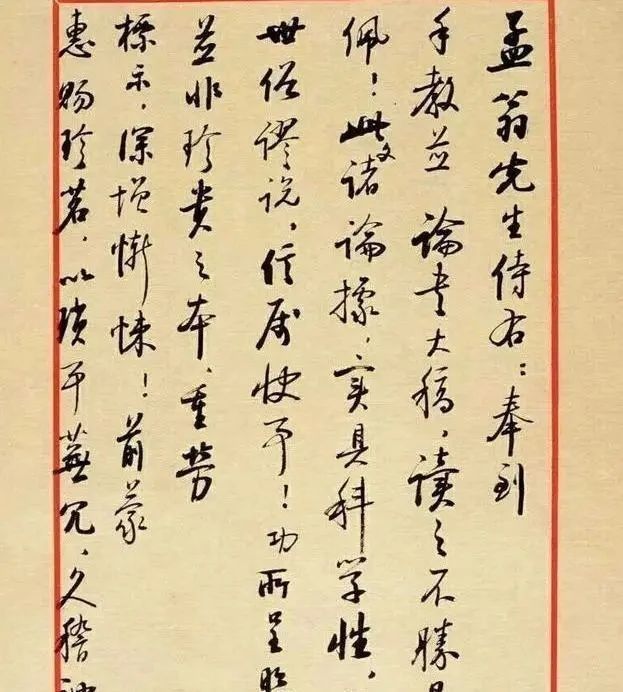 孟翁先生侍右：奉到
手教並 論書大稿，讀之不勝
佩！此文諸論據，實具科學性，
世俗謬說，信屬快事！功所呈
並非珍貴之本，重勞
標示，深增慚悚！前蒙
惠賜珍茗，以瑣事蕪冗，久稽